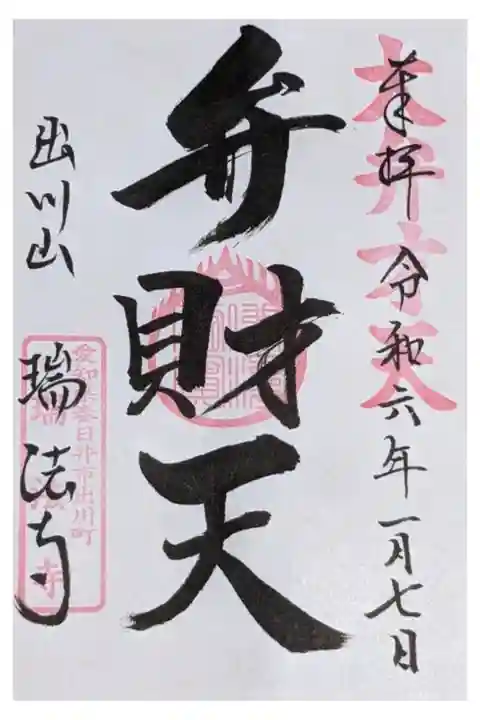 奉拝 令和六年一月七日
大弁才天
弁財天
出川山
瑞法寺
愛知県春日井市出川町
瑞法寺